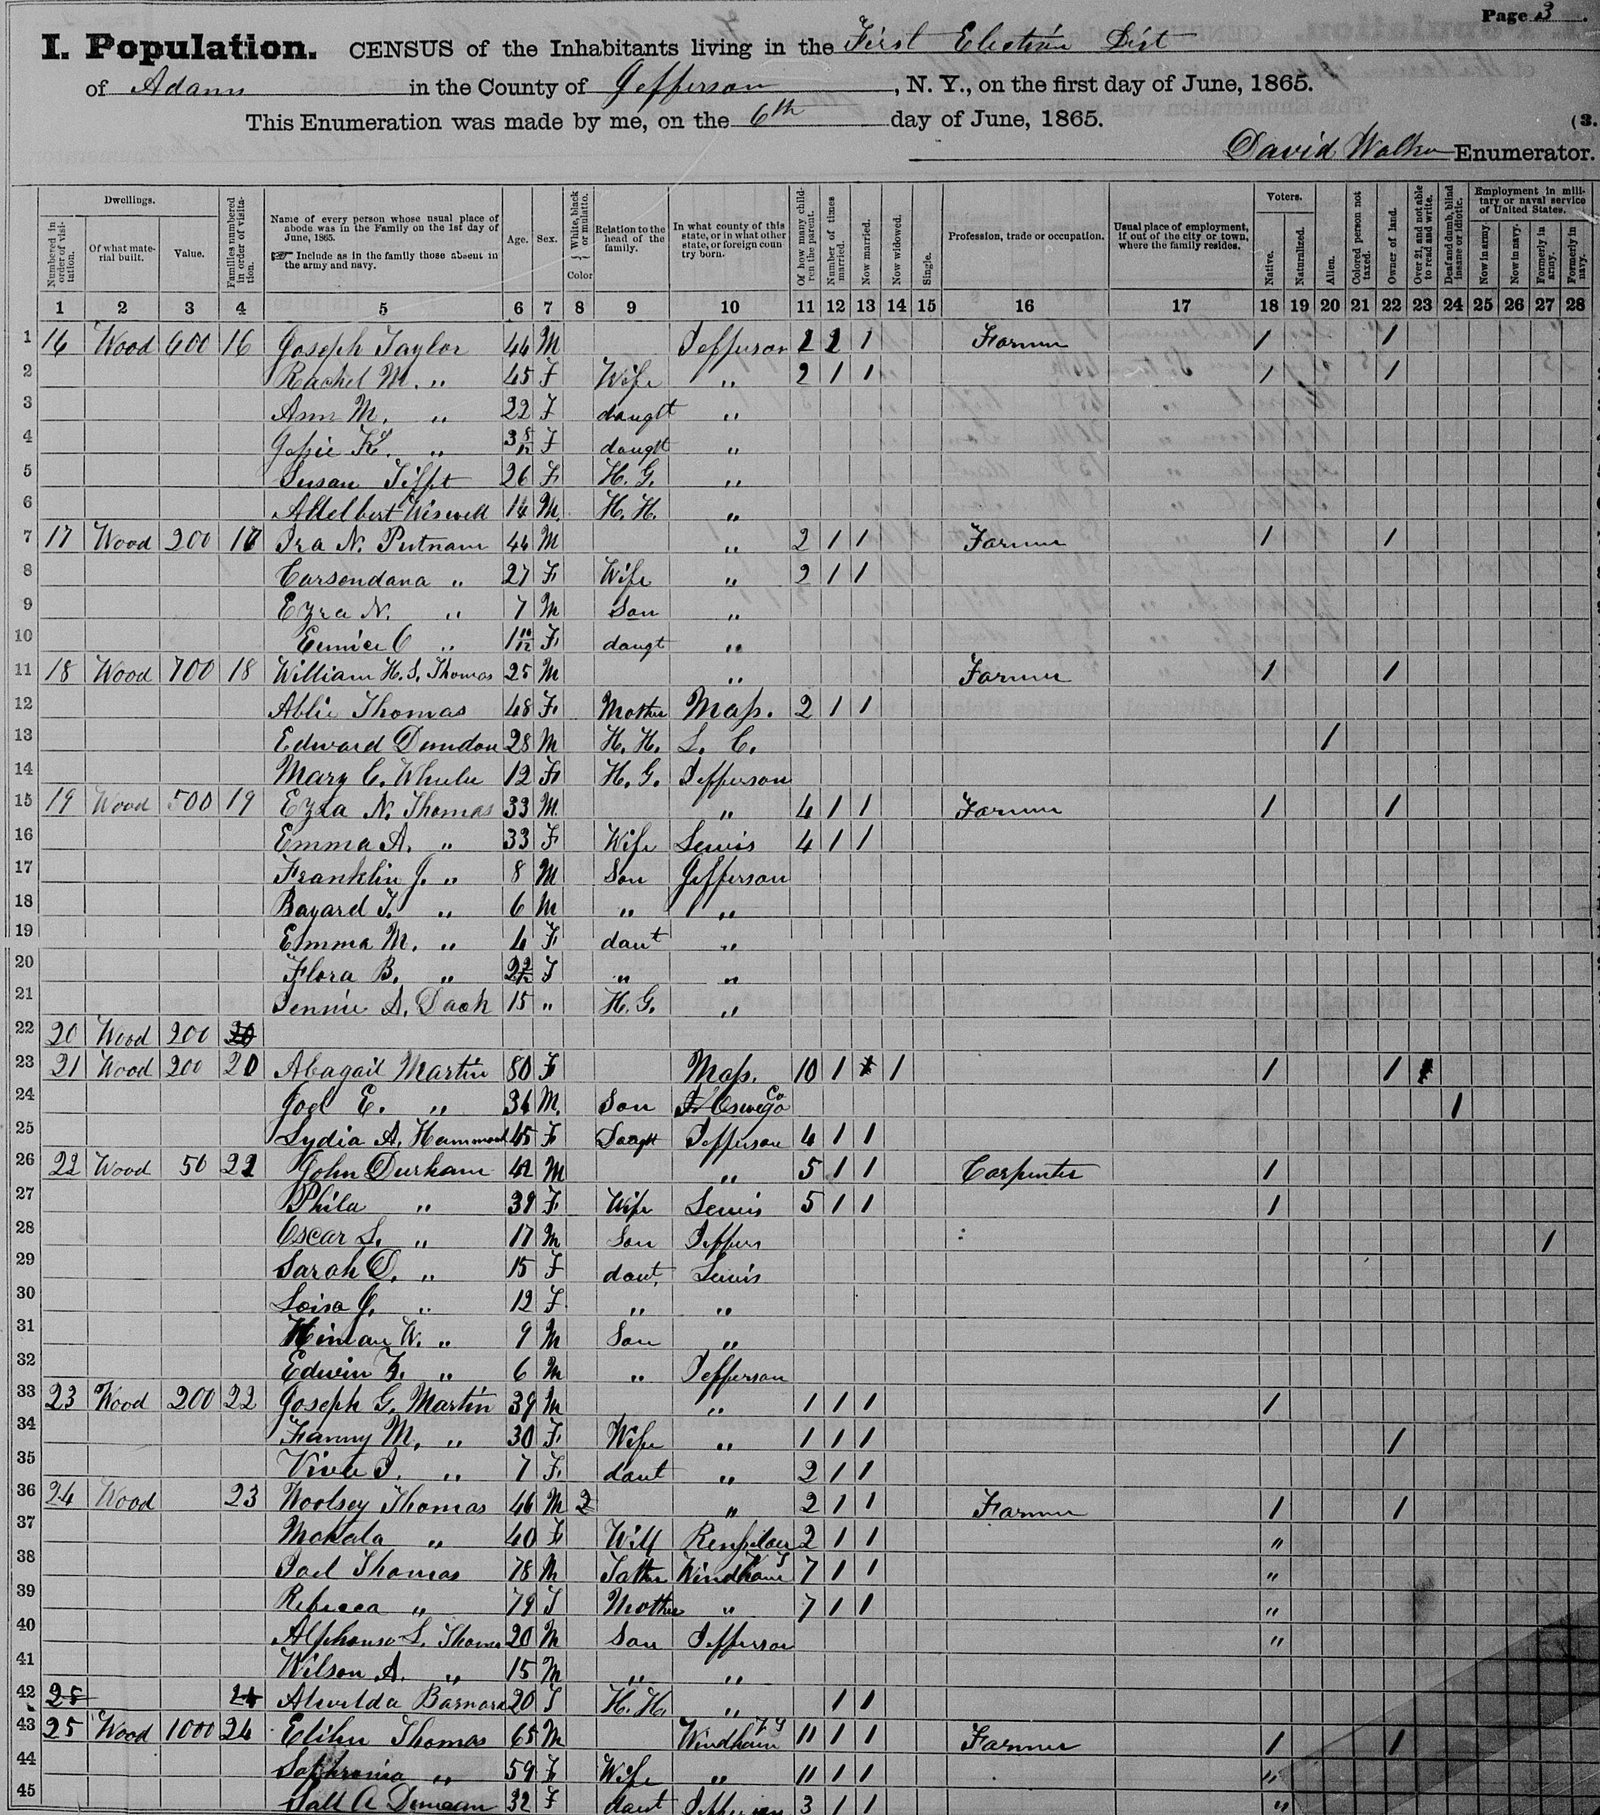 Page 3.
I. Population. CENSUS of the Inhabitants living in the First Election Dist
of Adams in the County of Jefferson, N. Y., on the first day of June, 1865.
This Enumeration was made by me, on the 6th day of June, 1865.
(3.
David Walker Enumerator.
Dwellings.
Numbered in order of visitation.
Of what material built.
Value.
Families numbered in order of visitation.
Name of every person whose usual place of abode was in the Family on the 1st day of June, 1865.
☞ Include as in the family those absent in the army and navy.
Age.
Sex.
White, black or mulatto.
Color
Relation to the head of the family.
In what county of this state, or in what other state, or foreign country born.
Of how many children the parent.
Number of times married.
Now married.
Now widowed.
Single.
Profession, trade or occupation.
Usual place of employment, if out of the city or town, where the family resides.
Voters.
Native.
Naturalized.
Alien.
Colored person not taxed.
Owner of land.
Over 21, and not able to read and write.
Deaf and dumb, blind insane or idiotic.
Employment in military or naval service of United States.
Now in army.
Now in navy.
Formerly in army.
Formerly in navy.
1 2 3 4 5 6 7 8 9 10 11 12 13 14 15 16 17 18 19 20 21 22 23 24 25 26 27 28
1 16 Wood 600 16 Joseph Taylor 44 M Jefferson 2 2 1 Farmer 1 1
2 Rachel M. " 45 F Wife " 2 1 1 1 1
3 Ann M. " 22 F daught "
4 " F daught "
5 Susan Tifft 26 F H. G. "
6 Adelbert Wiswell 14 M. H. H. "
7 17 Wood 200 17 Ira N. Putnam 44 M " 2 1 1 Farmer 1 1
8 " 27 F Wife " 2 1 1
9 Ezra N. " 7 M Son "
10 Eunice C " 1 10/12 F daugt "
11 18 Wood 700 18 William H. S. Thomas 25 M " Farmer 1 1
12 Abbie Thomas 48 F Mother Mass. 2 1 1
13 Edward Dundon 28 M H. H. L. C. 1
14 Mary C. Wheeler 12 F H. G. Jefferson
15 19 Wood 500 19 Ezra N. Thomas 33 M " 4 1 1 Farmer 1 1
16 Emma A. " 33 F Wife Lewis 4 1 1
17 Franklin J. " 8 M Son Jefferson
18 Bayard T. " 6 M " "
19 Emma M. " 4 F daut "
20 Flora B. " F " "
21 Jennie A. 15 " H. G. "
22 20 Wood 200
23 21 Wood 200 20 Abagail Martin 80 F Mass. 10 1 1 1 1
24 Joel E. " M. Son Oswego Co 1
25 Lydia A. Hammond 45 F Daught Jefferson 4 1 1
26 22 Wood 50 21 John Durham 42 M " 5 1 1 Carpenter 1
27 Phila " 39 F Wife Lewis 5 1 1 1
28 Oscar L. " 17 M Son Jeffers 1
29 Sarah D. " 15 F daut. Lewis
30 J. " 12 F. " "
31 Hiniau W. " 9 M Son "
32 Edwin F. " 6 M " Jefferson
33 23 Wood 200 22 Joseph G. Martin 39 M " 1 1 1 1
34 Fanny M. " 30 F Wife " 1 1 1 1
35 " 7 F daut " 2 1 1
36 24 Wood 23 Woolsey Thomas 46 M 2 " 2 1 1 Farmer 1 1
37 Mahala " 40 F Wife 2 1 1 "
38 Joel Thomas 78 M Father Windham 7 1 1 "
39 Rebecca " 79 F Mother " 7 1 1 "
40 Alphonso L. Thomas 20 M Son Jefferson "
41 Wilson A. " 15 M " "
42 25 24 Alwilda Barnard 20 F H. H. " 1 1
43 25 Wood 1000 24 Elihu Thomas 65 M Windham 11 1 1 Farmer 1 1
44 Sophronia " 59 F Wife " 11 1 1 "
45 A Duncan 32 F daut Jefferson 3 1 1 "